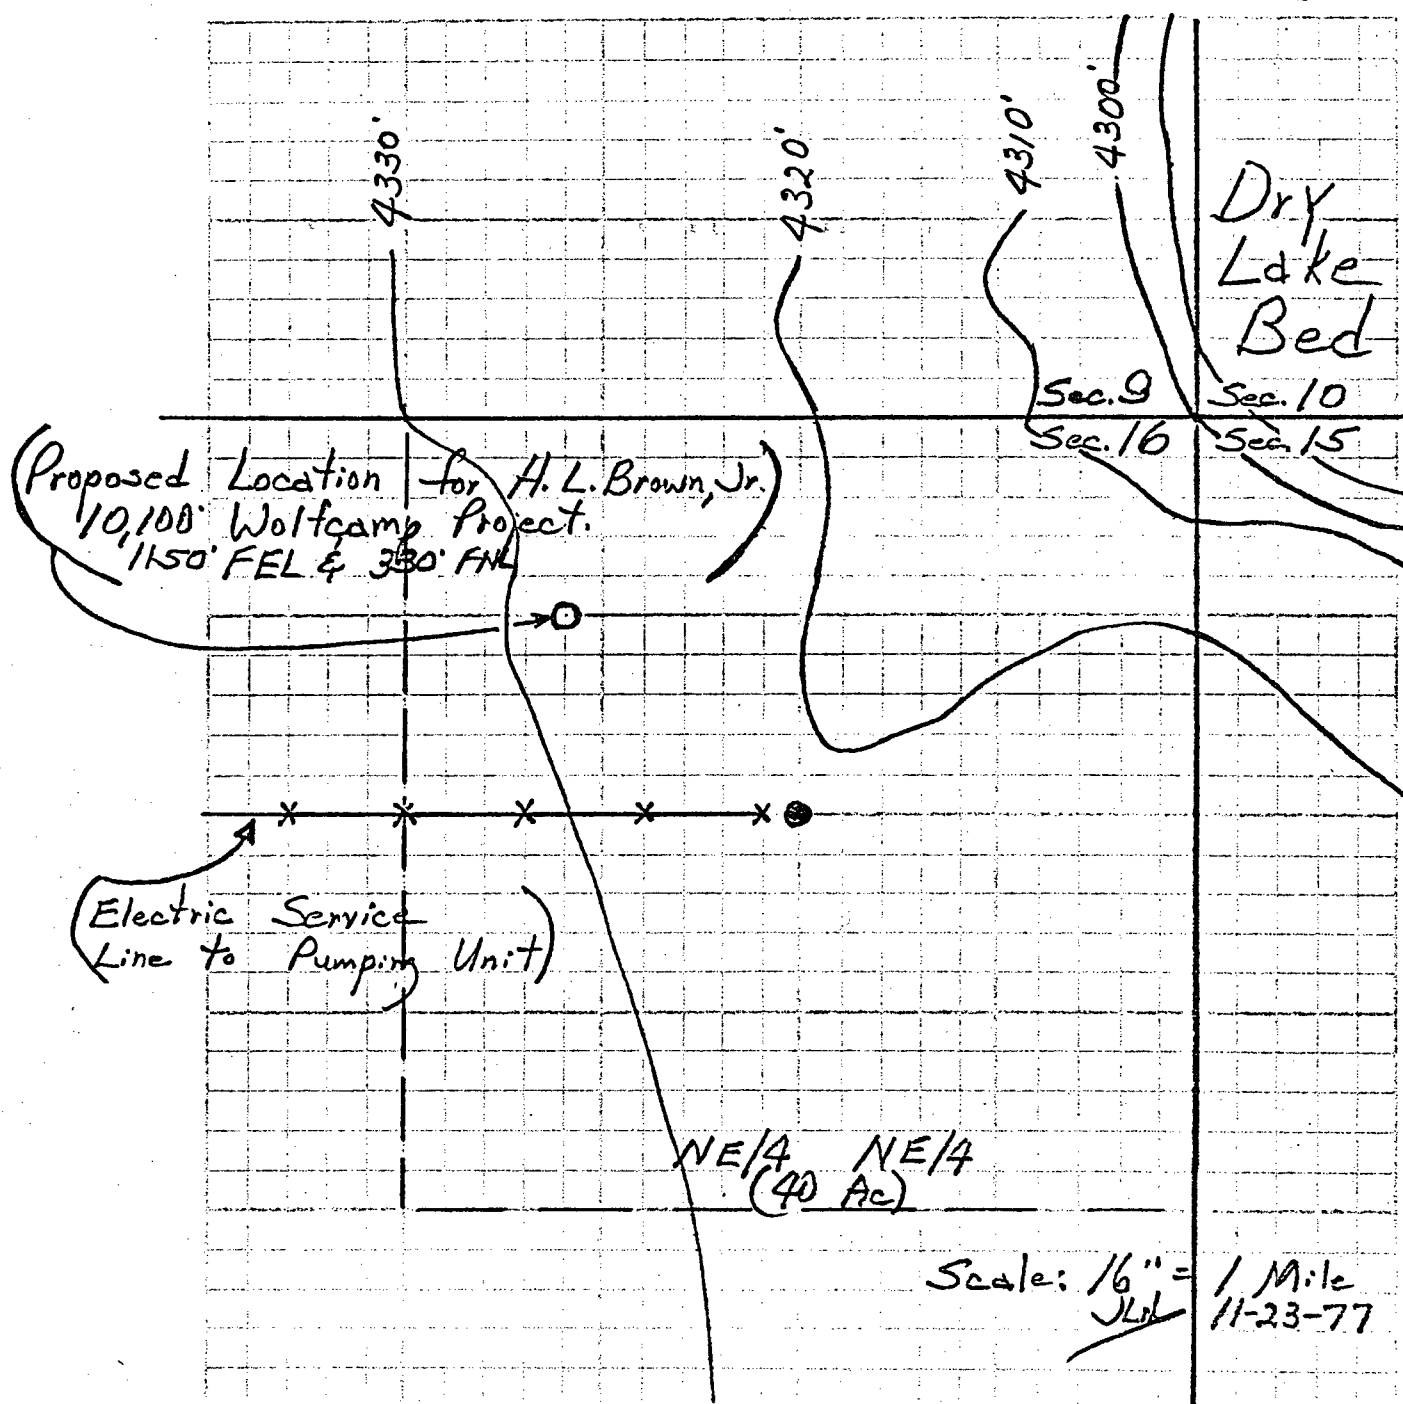 4330'
4320'
4310'
4300'
Dry
Lake
Bed
Sec. 9 Sec. 10
Sec. 16 Sec. 15
(Proposed Location for H. L. Brown, Jr.)
10,100' Wolfcamp Project.
1150' FEL & 330' FNL
(Electric Service
Line to Pumping Unit)
NE/4 NE/4
(40 Ac)
Scale: 16" = 1 Mile
11-23-77